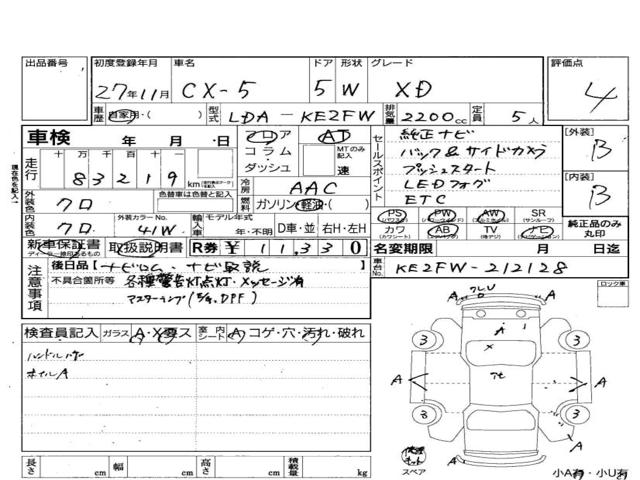 出品番号 初度登録年月 車名 ドア 形状 グレード 評価点
27年11月 CX-5 5 W XD 4
車歴 自家用・( ) 型式 LDA-KE2FW 排気量 2200cc 定員 5人
車検 年 月 日 フロア AT セールスポイント 純正ナビ [外装] B
走行 十 万 千 百 十 一 コラム・ダッシュ MTのみ記入 速 バック&サイドカメラ
83219 km プッシュスタート
冷房 AAC LEDフォグ [内装] B
外装色 クロ 色替車は色替と記入 燃料 ガソリン・軽油・( ) ETC
内装色 クロ 外装カラーNo. 41W 輸入車 モデル年式 年・不明 D車・並 右H・左H
PS PW AW SR (サンルーフ)
カワ (カワシート) AB TV ナビ 純正品のみ丸印
新車保証書 取扱説明書 R券 ¥11,330 名変期限 月 日迄
注意事項 後日品【ナビロム・ナビ取説 】 車台No. KE2FW-212128
不具合箇所等 各種警告灯点灯・メッセージ有
マスターランプ(E/G.DPF)
ロック車
検査員記入 ガラス A・X要ス 室内シート A コゲ・穴・汚れ・破れ
ハンドルスレ
ホイルA
クレU
A
A 1
3 3
X
A A
8 3
A
修理キット
スペア
長さ cm 幅 cm 高さ cm 積載量 kg
小A有・小U有